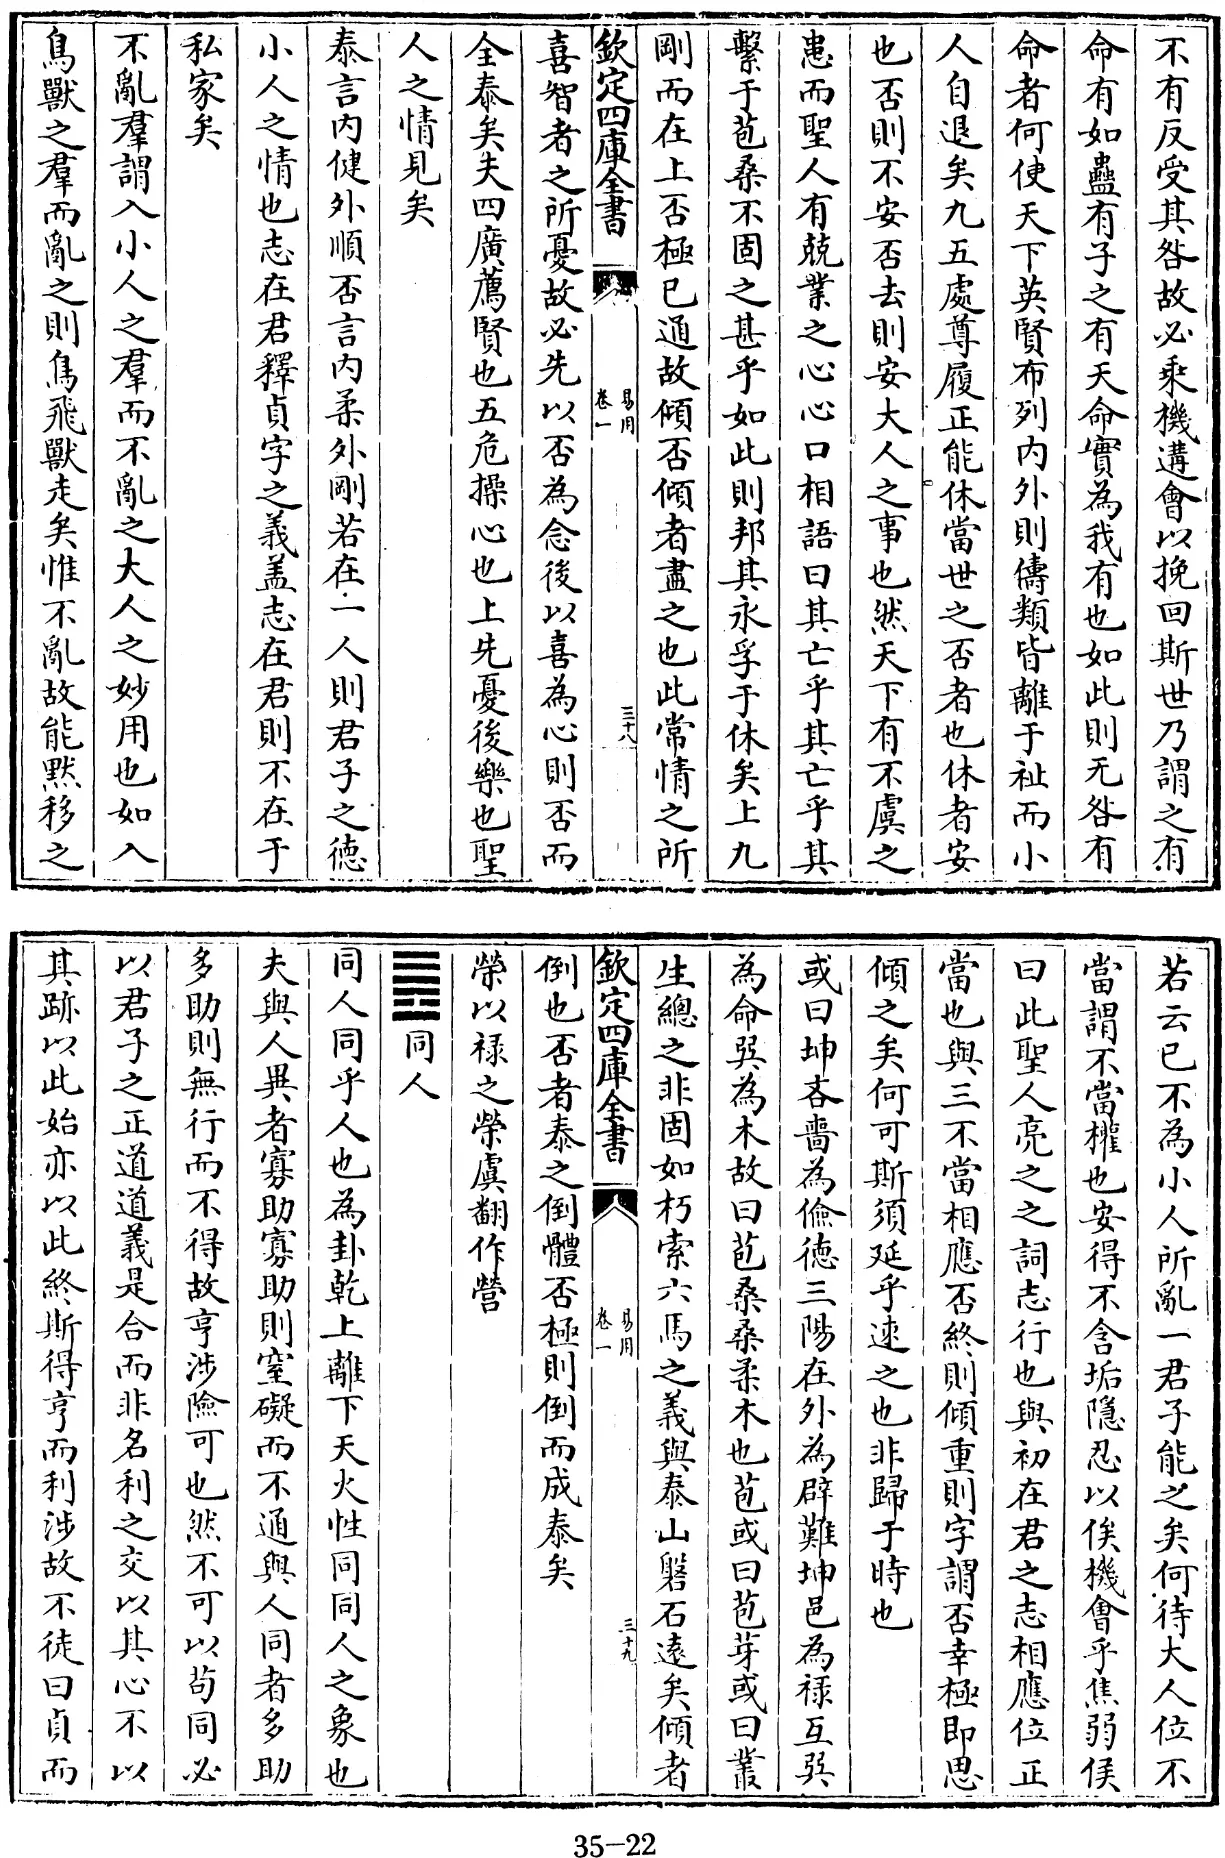 不有反受其咎故必乘機遘會以挽回斯世乃謂之有
命有如蠱有子之有天命實為我有也如此則无咎有
命者何使天下英賢布列內外則儔類皆離于祉而小
人自退矣九五處尊履正能休當世之否者也休者安
也否則不安否去則安大人之事也然天下有不虞之
患而聖人有兢業之心心口相語曰其亡乎其亡乎其
繫于苞桑不固之甚乎如此則邦其永孚于休矣上九
剛而在上否極已通故傾否傾者盡之也此常情之所
欽定四庫全書
易用
卷一
三十八
喜智者之所憂故必先以否為念後以喜為心則否而
全泰矣夫四廣薦賢也五危操心也上先憂後樂也聖
人之情見矣
泰言內健外順否言內柔外剛若在一人則君子之德
小人之情也志在君釋貞字之義盖志在君則不在于
私家矣
不亂羣謂入小人之羣而不亂之大人之妙用也如入
鳥獸之羣而亂之則鳥飛獸走矣惟不亂故能默移之
若云已不為小人所亂一君子能之矣何待大人位不
當謂不當權也安得不含垢隱忍以俟機會乎焦弱侯
曰此聖人亮之之詞志行也與初在君之志相應位正
當也與三不當相應否終則傾重則字謂否幸極即思
傾之矣何可斯須延乎速之也非歸于時也
或曰坤吝嗇為儉德三陽在外為辟難坤邑為祿互巽
為命巽為木故曰苞桑桑柔木也苞或曰苞芽或曰叢
生總之非固如朽索六馬之義與泰山磐石遠矣傾者
欽定四庫全書
易用
卷一
三十九
倒也否者泰之倒體否極則倒而成泰矣
榮以禄之榮虞翻作營
䷌同人
同人同乎人也為卦乾上離下天火性同同人之象也
夫與人異者寡助寡助則窒礙而不通與人同者多助
多助則無行而不得故亨涉險可也然不可以苟同必
以君子之正道道義是合而非名利之交以其心不以
其跡以此始亦以此終斯得亨而利涉故不徒曰貞而
35-22